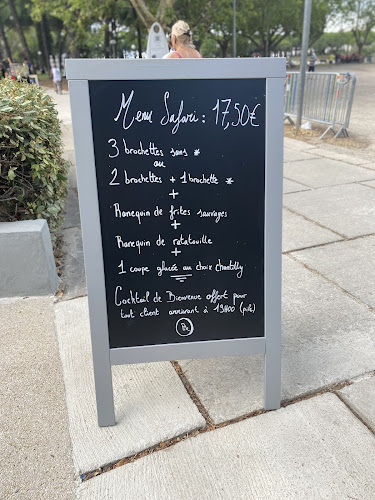 Menu Safari : 17,50€
3 brochettes sans *
ou
2 brochettes + 1 brochette *
+
Ranequin de frites sauvages
+
Ranequin de ratatouille
+
1 coupe glacée au choix chantilly
Cocktail de Bienvenue offert pour
tout client arrivant à 19H00 (pile)